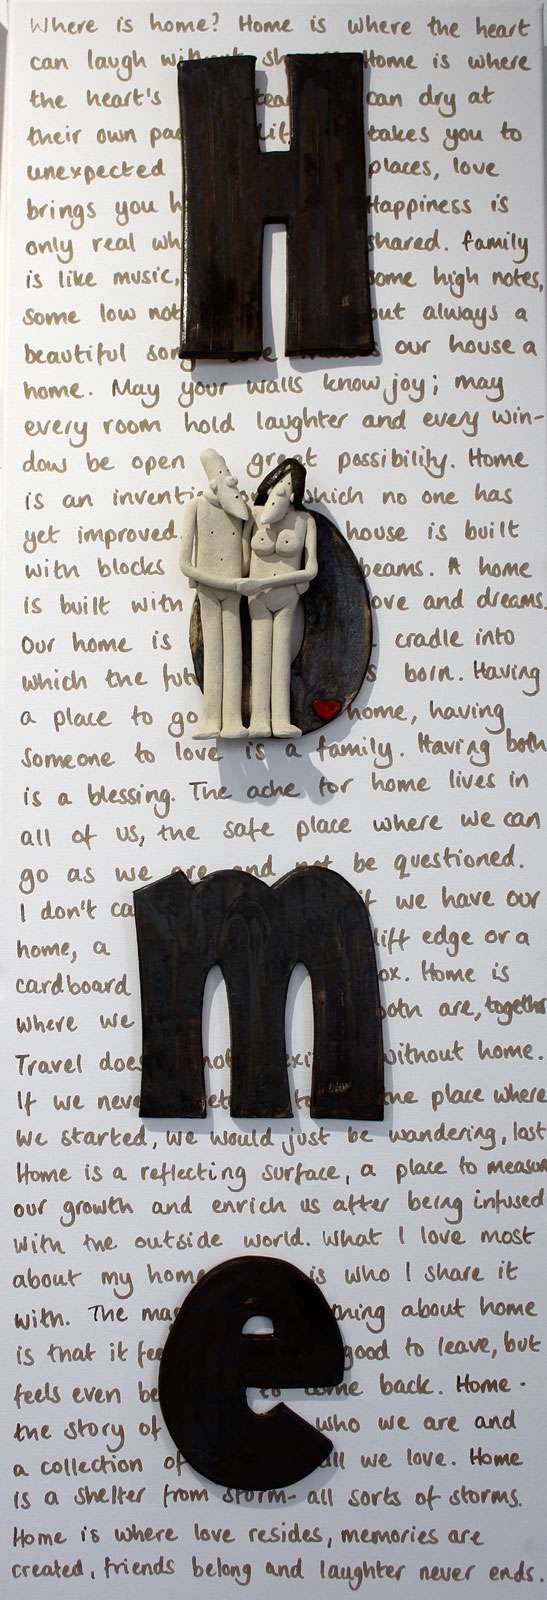 Where is home? Home is where the heart
can laugh without sh Home is where
the heart's tea can dry at
their own pa Lif takes you to
unexpected places, love
brings you h Happiness is
only real wh shared. family
is like music, some high notes,
some low not but always a
beautiful song our house a
home. May your walls know joy; may
every room hold laughter and every win-
dow be open great possibility. Home
is an inventi which no one has
yet improved. house is built
with blocks beams. A home
is built with love and dreams.
Our home is cradle into
which the fut s born. Having
a place to go home, having
someone to love is a family. Having both
is a blessing. The ache for home lives in
all of us, the safe place where we can
go as we are and not be questioned.
I don't ca if we have our
home, a cliff edge or a
cardboard ox. Home is
where we both are, together
Travel does not exi without home.
If we neve et to the place where
we started, we would just be wandering, lost
Home is a reflecting surface, a place to measure
our growth and enrich us after being infused
with the outside world. What I love most
about my home is who I share it
with. The mag thing about home
is that it fee good to leave, but
feels even be to come back. Home -
the story of who we are and
a collection of all we love. Home
is a shelter from storm- all sorts of storms.
Home is where love resides, memories are
created, friends belong and laughter never ends.
H
m
e